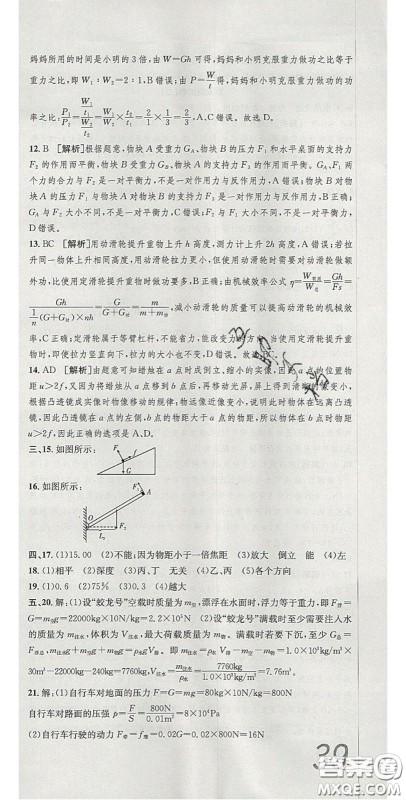 妈妈所用的时间是小明的3倍,由W=Gh可得,妈妈和小明克服重力做功之比等于
重力之比,即W₁:W₂=2:1,B错误;由P=W/t可得,妈妈和小明克服重力做功的功
率之比P₁/P₂=(W₁/t₁)/(W₂/t₂)=W₁/W₂×t₂/t₁=2/1×1/3=2/3,A、C错误。故选D。
12.B [解析]根据题意,物块A受重力G_A、物块B的压力F₁和水平桌面的支持力
F₂的作用而平衡,物块B受重力G_B、物块A的支持力F₃的作用而平衡。G_A、F₂两
个力的合力与F₁是一对平衡力,不是一对作用力与反作用力,D错误;物块B对物
块A的压力F₁与物块A对物块B的支持力F₃是一对作用力与反作用力,B正确;
G_A与F₂大小不同,不是一对平衡力,C错误;F₁与F₂大小不同,不是一对平衡力,
A错误。
13.BC [解析]用动滑轮提升重物上升h高度,测力计上升2h高度,A错误;若拉
升同一物体上升相同高度,用动滑轮拉力更小,但使用动滑轮时需要对动滑轮做额
外功,以使得使用动滑轮提升重物时做功更多,B正确;由机械效率公式η=W有用/W总=Gh/Fs
=Gh/(1/n(G+G动)×nh)=G/(G+G动)=m/(m+m动),减小动滑轮的质量可以提高动滑轮的机械效
率,C正确;定滑轮属于等臂杠杆,不能省力,但能改变力的方向,当使用定滑轮提升
物体时,即使拉力竖直向下,拉力的大小也不变,D错误。故选BC。
14.AD [解析]由题意可知蜡烛在a点时成倒立、缩小的实像,因而a点的位置物
距u>2f,又因为将蜡烛从a点移到b点后,再移动光屏,屏上得到清晰的像变小,
根据凸透镜成实像时物像移动的规律,物远像近像变小,说明物体在远离凸透
镜,因此凸透镜在a点的左侧,b点的物距大于a点的物距,所以物体在b点时物距
u>2f,因此正确的选项A、D。
三、15.如图所示:
16.如图所示:
四、17.(1)15.00 (2)不能;因为物距小于一倍焦距 (3)放大 倒立 能 (4)左
18.(1)相平 (2)深度 (3)丙、丁 无关 (4)乙、丙 (5)各个方向
19.(1)0.6 (2)75% (3)0.3 (4)越大
五、20.解:(1)设“蛟龙号”空载时质量为m,漂浮在水面时,浮力等于重力,即F浮=
G=m总g=22000kg×10N/kg=2.2×10⁵N (2)设“蛟龙号”满载时至少需要注入水
的质量为m注水,体积为V注水,最大荷载质量为m载。满载时若要下沉,至少G总=
F浮总,即m空g+m注水g+m载g=ρ水gV排,m注水=ρ水V排-m空-m载=1.0×10³kg/m³×
30m³-22000kg-240kg=7760kg,V注水=m注水/ρ水=7760kg/(1.0×10³kg/m³)=7.76m³。
21.解:(1)自行车对地面的压力F=G=mg=80kg×10N/kg=800N
自行车对路面的压强p=F/S=800N/0.01m²=8×10⁴Pa
(2)自行车行驶的动力F牵=f阻=0.02G=0.02×800N=16N
39